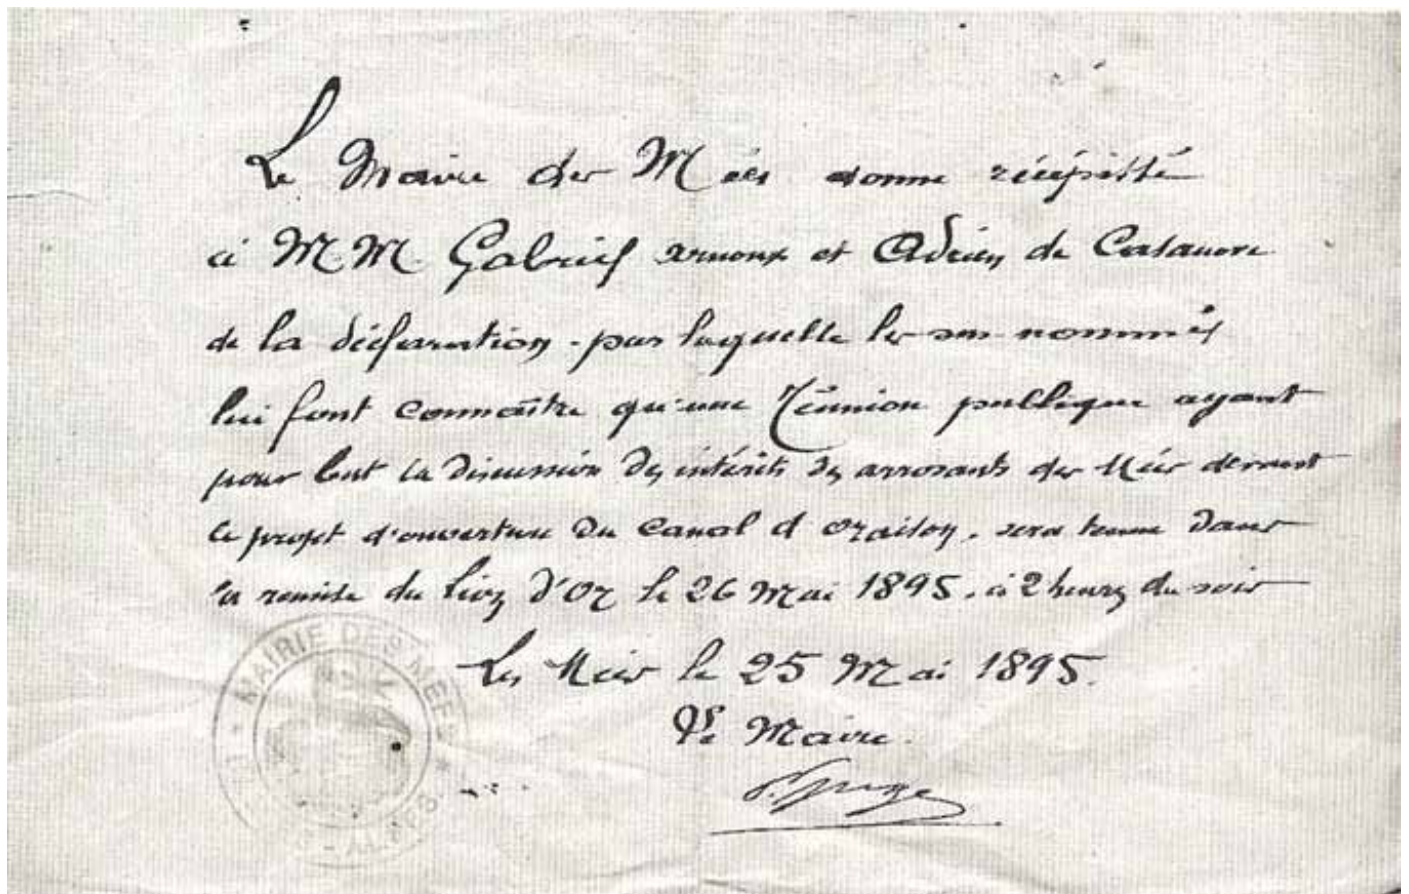 Le Maire des Mées donne récépissé
à M.M. Gabriel Arnoux et Adrien de Casanove
de la déclaration par laquelle les sus-nommés
lui font connaître qu'une Réunion publique ayant
pour but la discussion des intérêts des arrosants des Mées devant
le projet d'ouverture du Canal d'Oraison, sera tenue dans
la remise du Lion d'Or le 26 Mai 1895, à 2 heures du soir
Les Mées le 25 Mai 1895.
Le Maire.
MAIRIE DES MÉES
ALPES